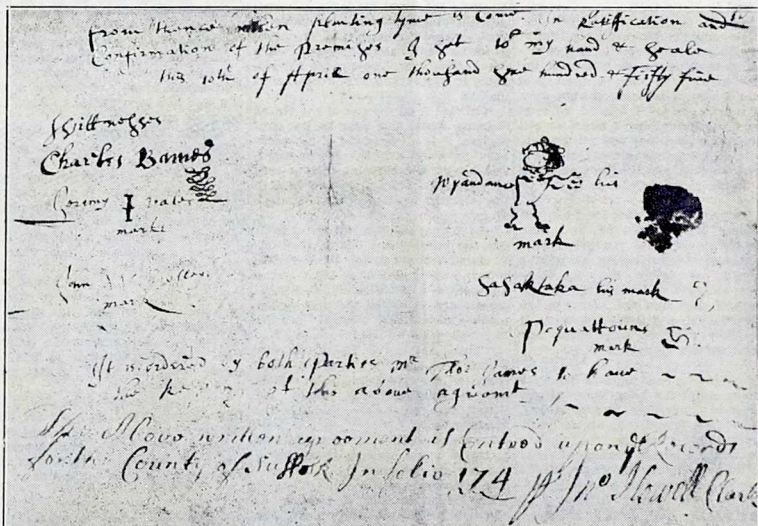 from thence when planting tyme is come. In Ratification and
Confirmation of the premises I set to my hand & seale
this 10th of April one thousand six hundred & fifty five
Wittnesses
Charles Barnes
Wyandance his
mark
Jeremy
marke
John
mark
Sasaktaka his mark
Poquattoun
mark
It is ordered by both parties Mr Tho: James to have
the of this above agreemt
The Above written agreement is Entred upon ye Records
for the County of Suffolk In folio 174 pr Jno Howell Clark